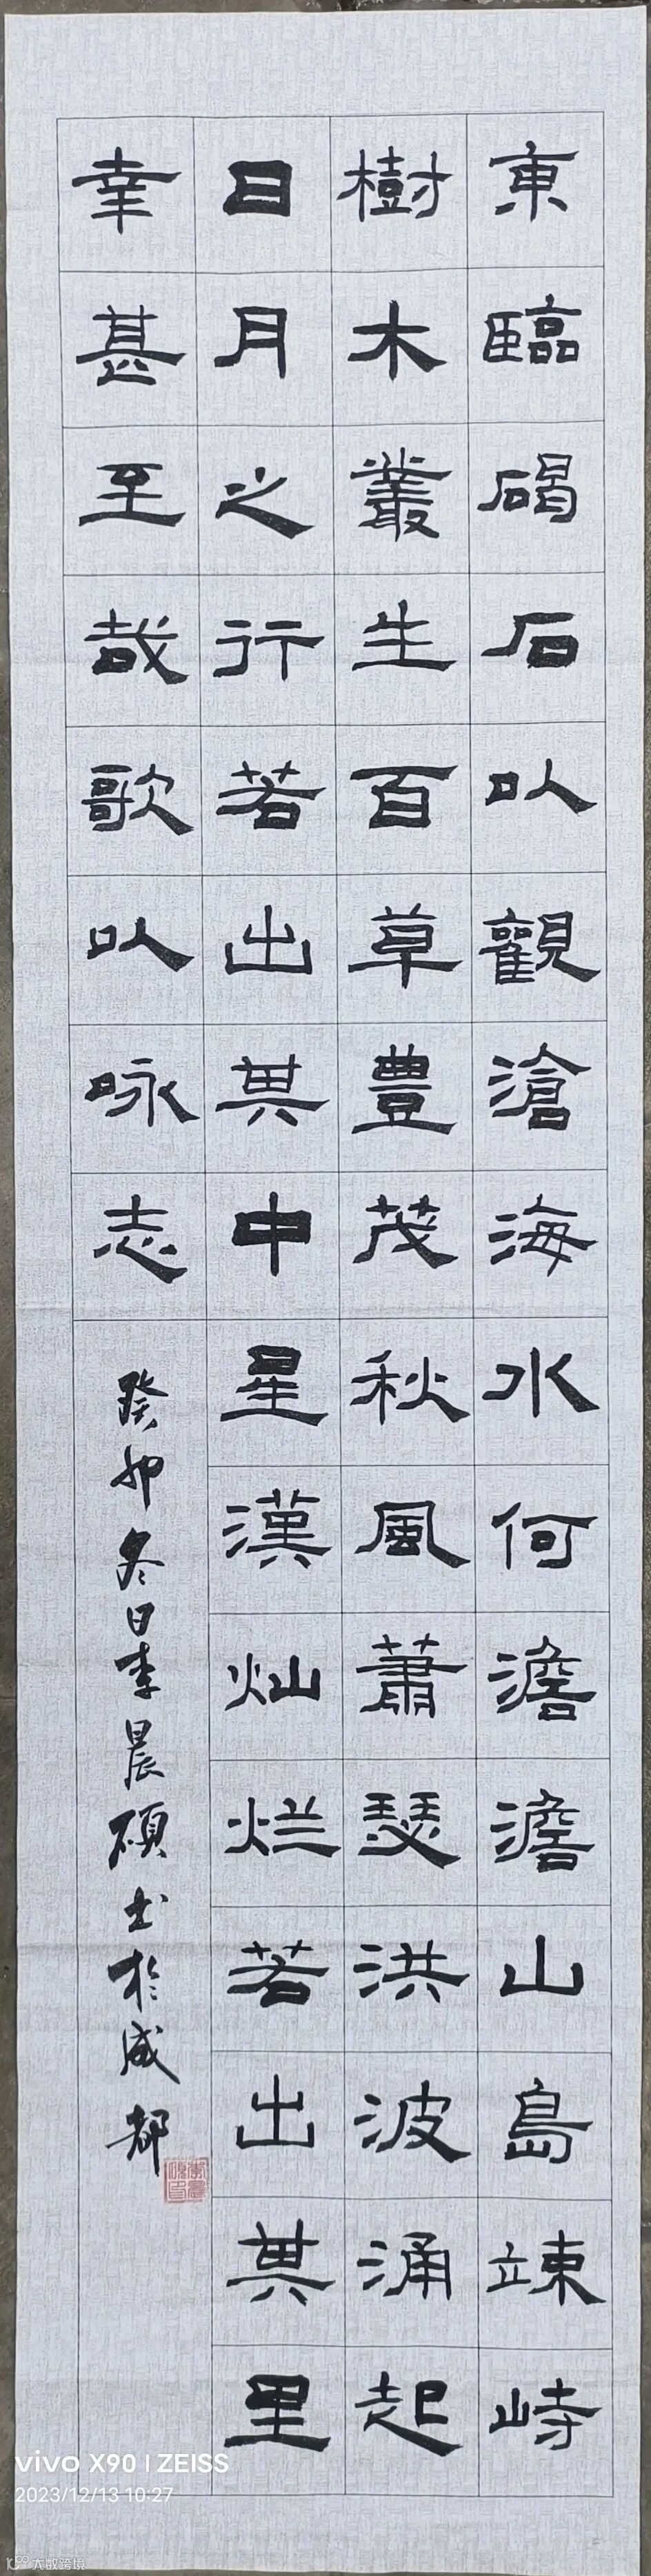 東臨碣石以觀滄海水何澹澹山島竦峙
樹木叢生百草豊茂秋風蕭瑟洪波涌起
日月之行若出其中星漢灿烂若出其里
幸甚至哉歌以咏志
癸卯冬日李晨碩书於成都
vivo X90 | ZEISS
2023/12/13 10:27
大数跨境